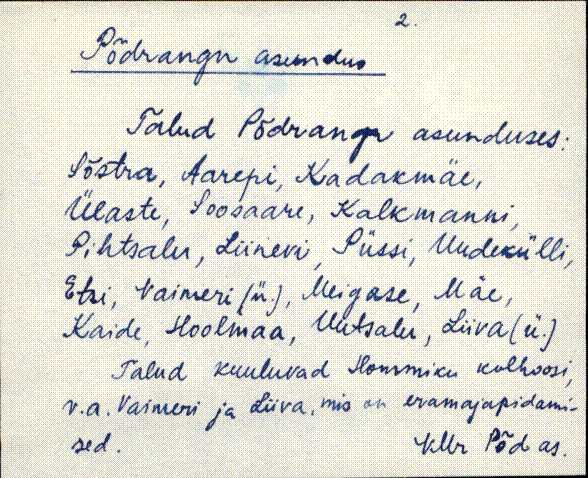 2.
Põdrangu asundus
Talud Põdrangu asunduses:
Sõstra, Aarepi, Kadakmäe,
Ülaste, Soosaare, Kalkmanni,
Pihtsalu, Liinevi, Püssi, Uudekülli,
Etsi, Vaimeri (ü.), Meigase, Mäe,
Kaide, Hoolmaa, Uutsalu, Liiva (ü.)
Talud kuuluvad Hommiku kolhoosi,
v.a. Vaimeri ja Liiva, mis on eramajapidami-
sed. VMr Põd as.